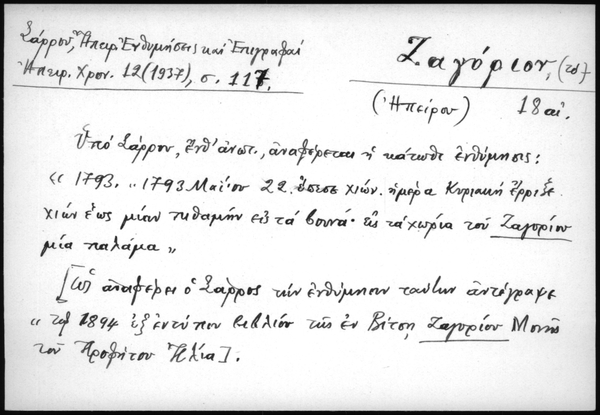 Σάρρου, Ἠπειρ. Ἐνθυμήσεις καὶ Ἐπιγραφαί
Ἠπειρ. Χρον. 12 (1937), σ. 117.
Ζαγόριον, (τό)
(Ἠπείρου) 18 αἰ.
Ὑπό Σάρρου, ἔνθ' ἀνωτ., ἀναφέρεται ἡ κάτωθι ἐνθύμησις:
« 1793. „ 1793 Μαΐου 22. ἔπεσε χιών. ἡμέρα Κυριακή ἔρριξε
χιών ἕως μίαν πιθαμήν εἰς τά βουνά· εἰς τά χωρία τοῦ Ζαγορίου
μία παλάμα »
[Ὡς ἀναφέρει ὁ Σάρρος τήν ἐνθύμησιν ταύτην ἀντέγραψε
« τῷ 1894 ἐξ ἐντύπου βιβλίου τῆς ἐν Βίτσῃ Ζαγορίου Μονῆς
τοῦ Προφήτου Ἠλία].